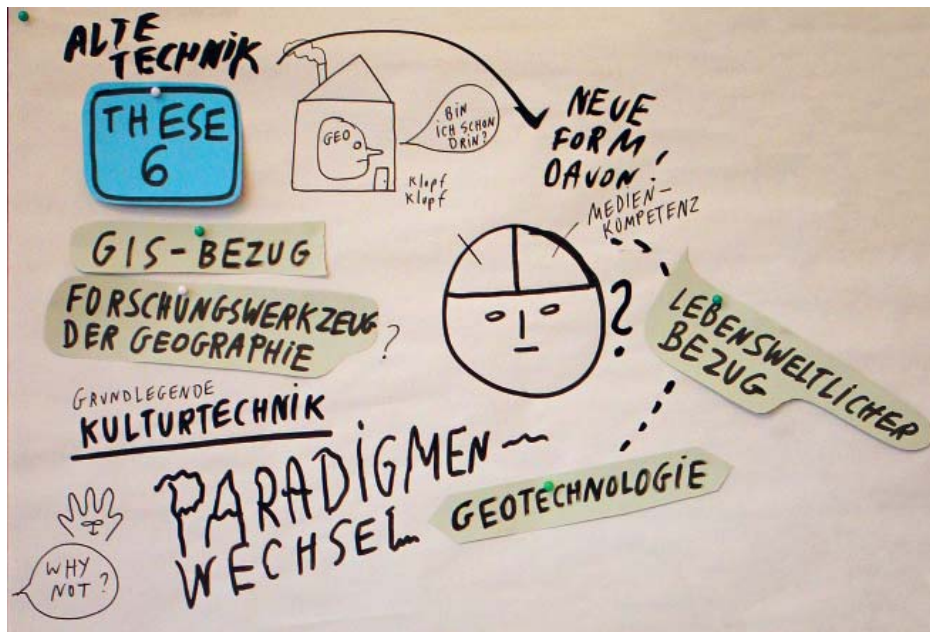 ALTE
TECHNIK
THESE
6
GEO
BIN
ICH SCHON
DRIN?
Klopf
Klopf
NEUE
FORM,
DAVON.
MEDIEN-
KOMPETENZ
GIS-BEZUG
FORSCHUNGSWERKZEUG
DER GEOGRAPHIE ?
?
LEBENSWELTLICHER
BEZUG
GRUNDLEGENDE
KULTURTECHNIK
PARADIGMEN~
WECHSEL
GEOTECHNOLOGIE
WHY
NOT?